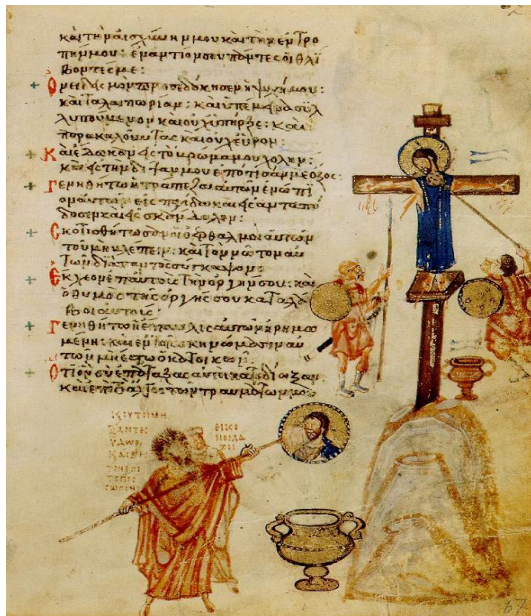 καὶ τὴν αἰσχύνην μου καὶ τὴν ἐντρο
πήν μου· ἐναντίον σου πάντες οἱ θλί
βοντές με:
Ὀνειδισμὸν προσεδόκησεν ἡ ψυχή μου·
καὶ ταλαιπωρίαν· καὶ ὑπέμεινα συλ
λυπούμενον καὶ οὐχ ὑπῆρξε· καὶ
παρακαλοῦντας καὶ οὐχ εὗρον:
Καὶ ἔδωκαν εἰς τὸ βρῶμά μου χολήν·
καὶ εἰς τὴν δίψαν μου ἐπότισάν με ὄξος:
Γενηθήτω ἡ τράπεζα αὐτῶν ἐνώπι
ον αὐτῶν εἰς παγίδα καὶ εἰς ἀνταπό
δοσιν καὶ εἰς σκάνδαλον:
Σκοτισθήτωσαν οἱ ὀφθαλμοὶ αὐτῶν
τοῦ μὴ βλέπειν· καὶ τὸν νῶτον αὐ
τῶν διὰ παντὸς σύγκαμψον:
Ἔκχεον ἐπ' αὐτοὺς τὴν ὀργήν σου· καὶ
ὁ θυμὸς τῆς ὀργῆς σου καταλά
βοι αὐτούς:
Γενηθήτω ἡ ἔπαυλις αὐτῶν ἠρημω
μένη· καὶ ἐν τοῖς σκηνώμασιν αὐ
τῶν μὴ ἔστω ὁ κατοικῶν:
Ὅτι ὃν σὺ ἐπάταξας αὐτοὶ κατεδίωξαν
καὶ ἐπὶ τὸ ἄλγος τῶν τραυμάτων μου